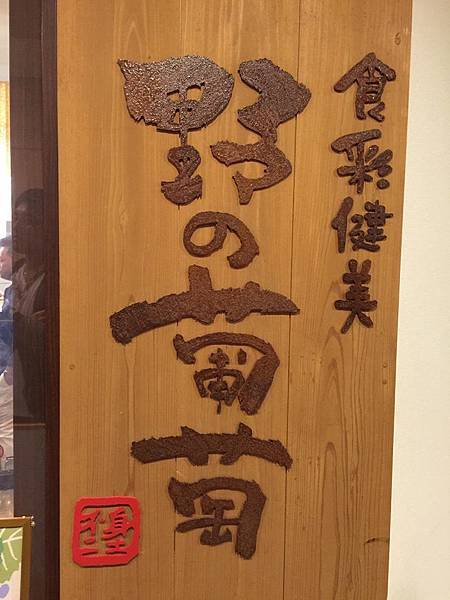 食彩健美
野の葡萄